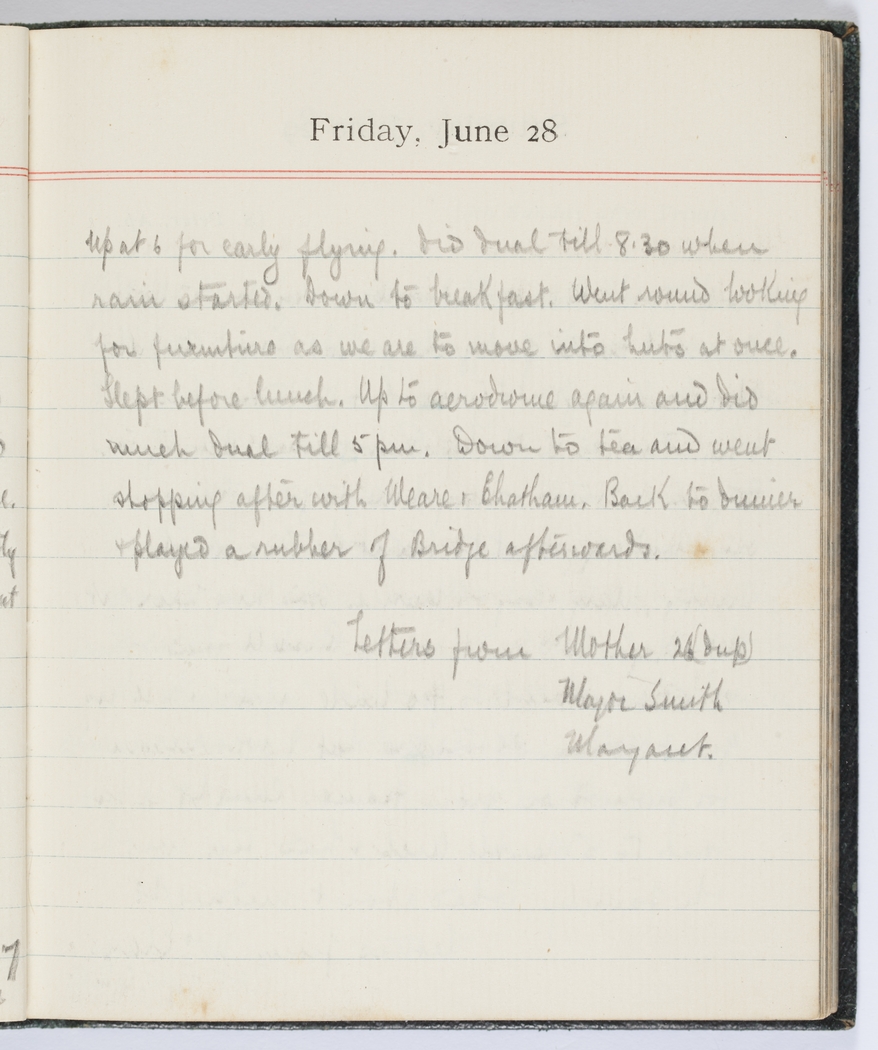 Friday, June 28
Up at 6 for early flying. Did dual till 8.30 when
rain started. Down to breakfast. Went round looking
for furniture as we are to move into huts at once.
Slept before lunch. Up to aerodrome again and did
much dual till 5 pm. Down to tea and went
shopping after with Weare & Chatham. Back to dinner
+ played a rubber of Bridge afterwards.
Letters from Mother 26 (dup)
Major Smith
Margaret.